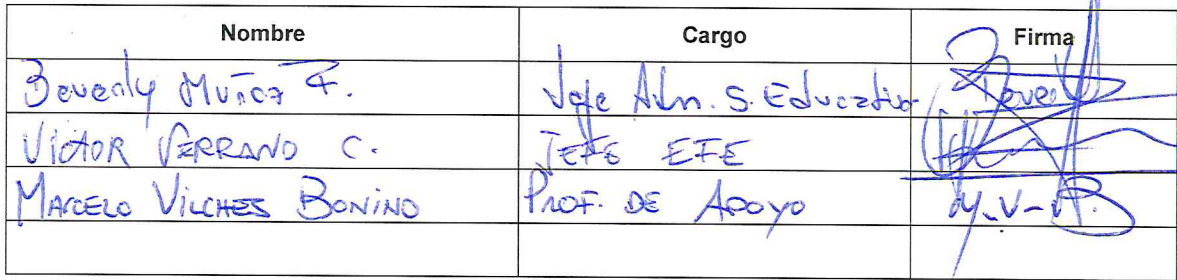 Nombre Cargo Firma
Beverly Muñoz F. Jefe Adm. S. Educativo Bever
VICTOR SERRANO C. JEFE EFE
MARCELO VILCHES BONINO PROF. DE APOYO M.V-B.